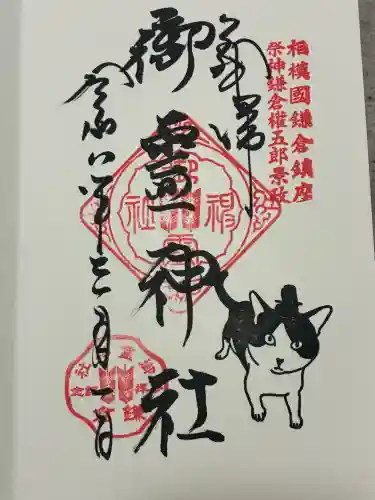 相模國鎌倉鎮座
祭神鎌倉權五郎景政
奉拝
御靈神社
令和八年三月一日